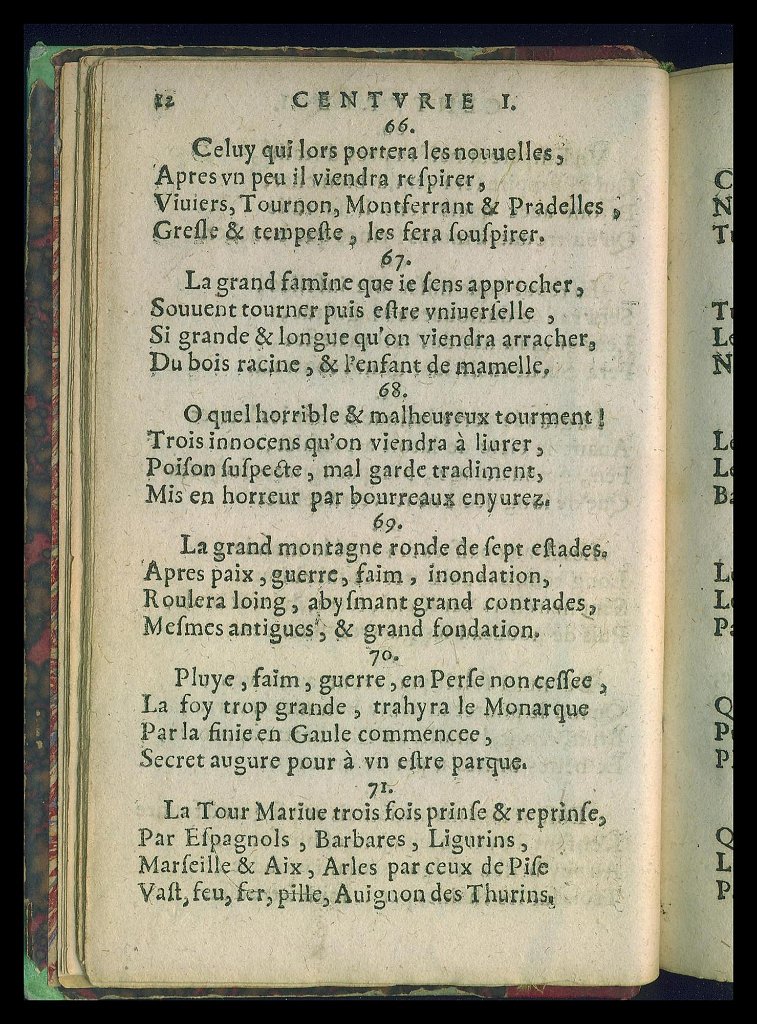 12 CENTVRIE I.
66.
Celuy qui lors portera les nouuelles,
Apres vn peu il viendra reſpirer,
Viuiers, Tournon, Montferrant & Pradelles ;
Greſle & tempeſte, les fera ſouſpirer.
67.
La grand famine que ie ſens approcher,
Souuent tourner puis eſtre vniuerſelle ,
Si grande & longue qu'on viendra arracher,
Du bois racine, & l'enfant de mamelle.
68.
O quel horrible & malheureux tourment !
Trois innocens qu'on viendra à liurer,
Poiſon ſuſpecte, mal garde tradiment,
Mis en horreur par bourreaux enyurez.
69.
La grand montagne ronde de ſept eſtades.
Apres paix, guerre, faim, inondation,
Roulera loing, abyſmant grand contrades,
Meſmes antigues, & grand fondation.
70.
Pluye, faim, guerre, en Perſe non ceſſee,
La foy trop grande, trahyra le Monarque
Par la finie en Gaule commencee,
Secret augure pour à vn eſtre parque.
71.
La Tour Mariue trois fois prinſe & reprinſe,
Par Eſpagnols, Barbares, Ligurins,
Marſeille & Aix, Arles par ceux de Piſe
Vaſt, feu, fer, pille, Auignon des Thurins.